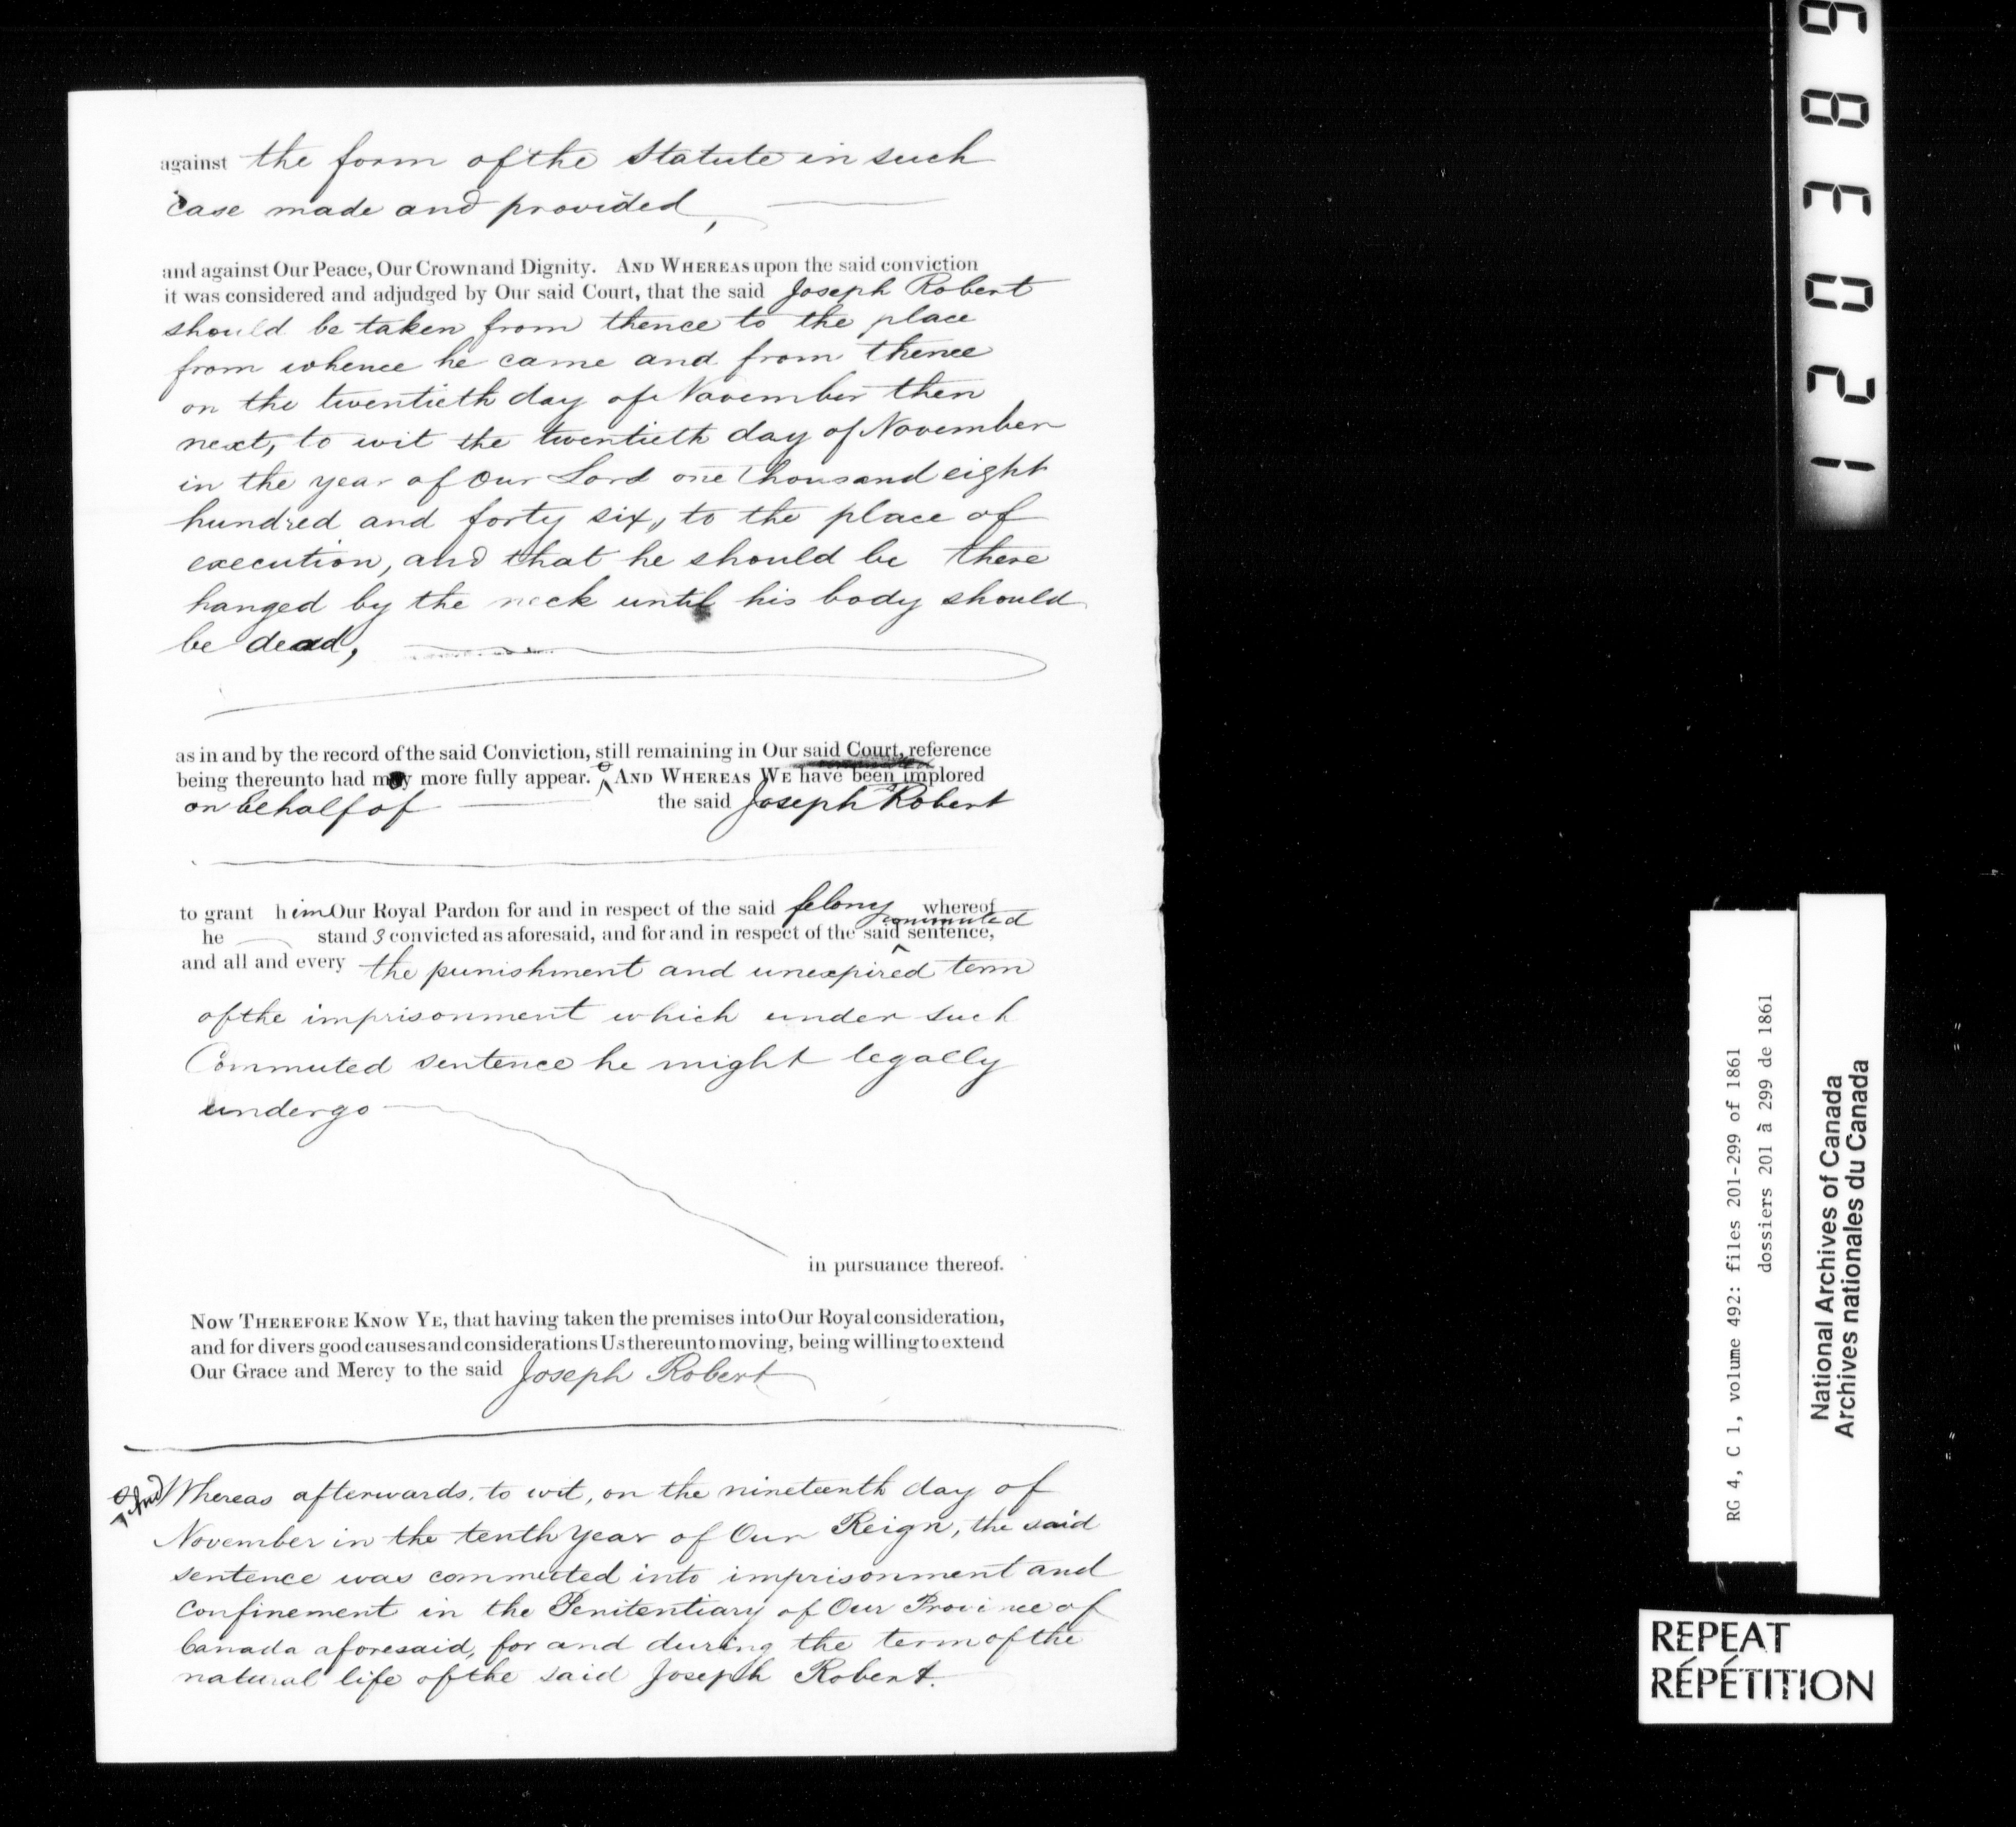 against the form of the Statute in such
Case made and provided,
and against Our Peace, Our Crown and Dignity. AND WHEREAS upon the said conviction
it was considered and adjudged by Our said Court, that the said Joseph Robert
should be taken from thence to the place
from whence he came and from thence
on the twentieth day of November then
next, to wit the twentieth day of November
in the year of Our Lord one thousand eight
hundred and forty six, to the place of
execution, and that he should be there
hanged by the neck until his body should
be dead,
as in and by the record of the said Conviction, still remaining in Our said Court, reference
being thereunto had may more fully appear. AND WHEREAS WE have been implored
on behalf of the said Joseph Robert
to grant him Our Royal Pardon for and in respect of the said felony whereof
commuted
he stands convicted as aforesaid, and for and in respect of the said ^ sentence,
and all and every the punishment and unexpired term
of the imprisonment which under such
Commuted sentence he might legally
undergo
in pursuance thereof.
NOW THEREFORE KNOW YE, that having taken the premises into Our Royal consideration,
and for divers good causes and considerations Us thereunto moving, being willing to extend
Our Grace and Mercy to the said Joseph Robert
And Whereas afterwards, to wit, on the nineteenth day of
November in the tenth Year of Our Reign, the said
sentence was commuted into imprisonment and
Confinement in the Penitentiary of Our Province of
Canada aforesaid, for and during the term of the
natural life of the said Joseph Robert.
RG 4, C 1, volume 492: files 201-299 of 1861
dossiers 201 à 299 de 1861
National Archives of Canada
Archives nationales du Canada
REPEAT
RÉPÉTITION